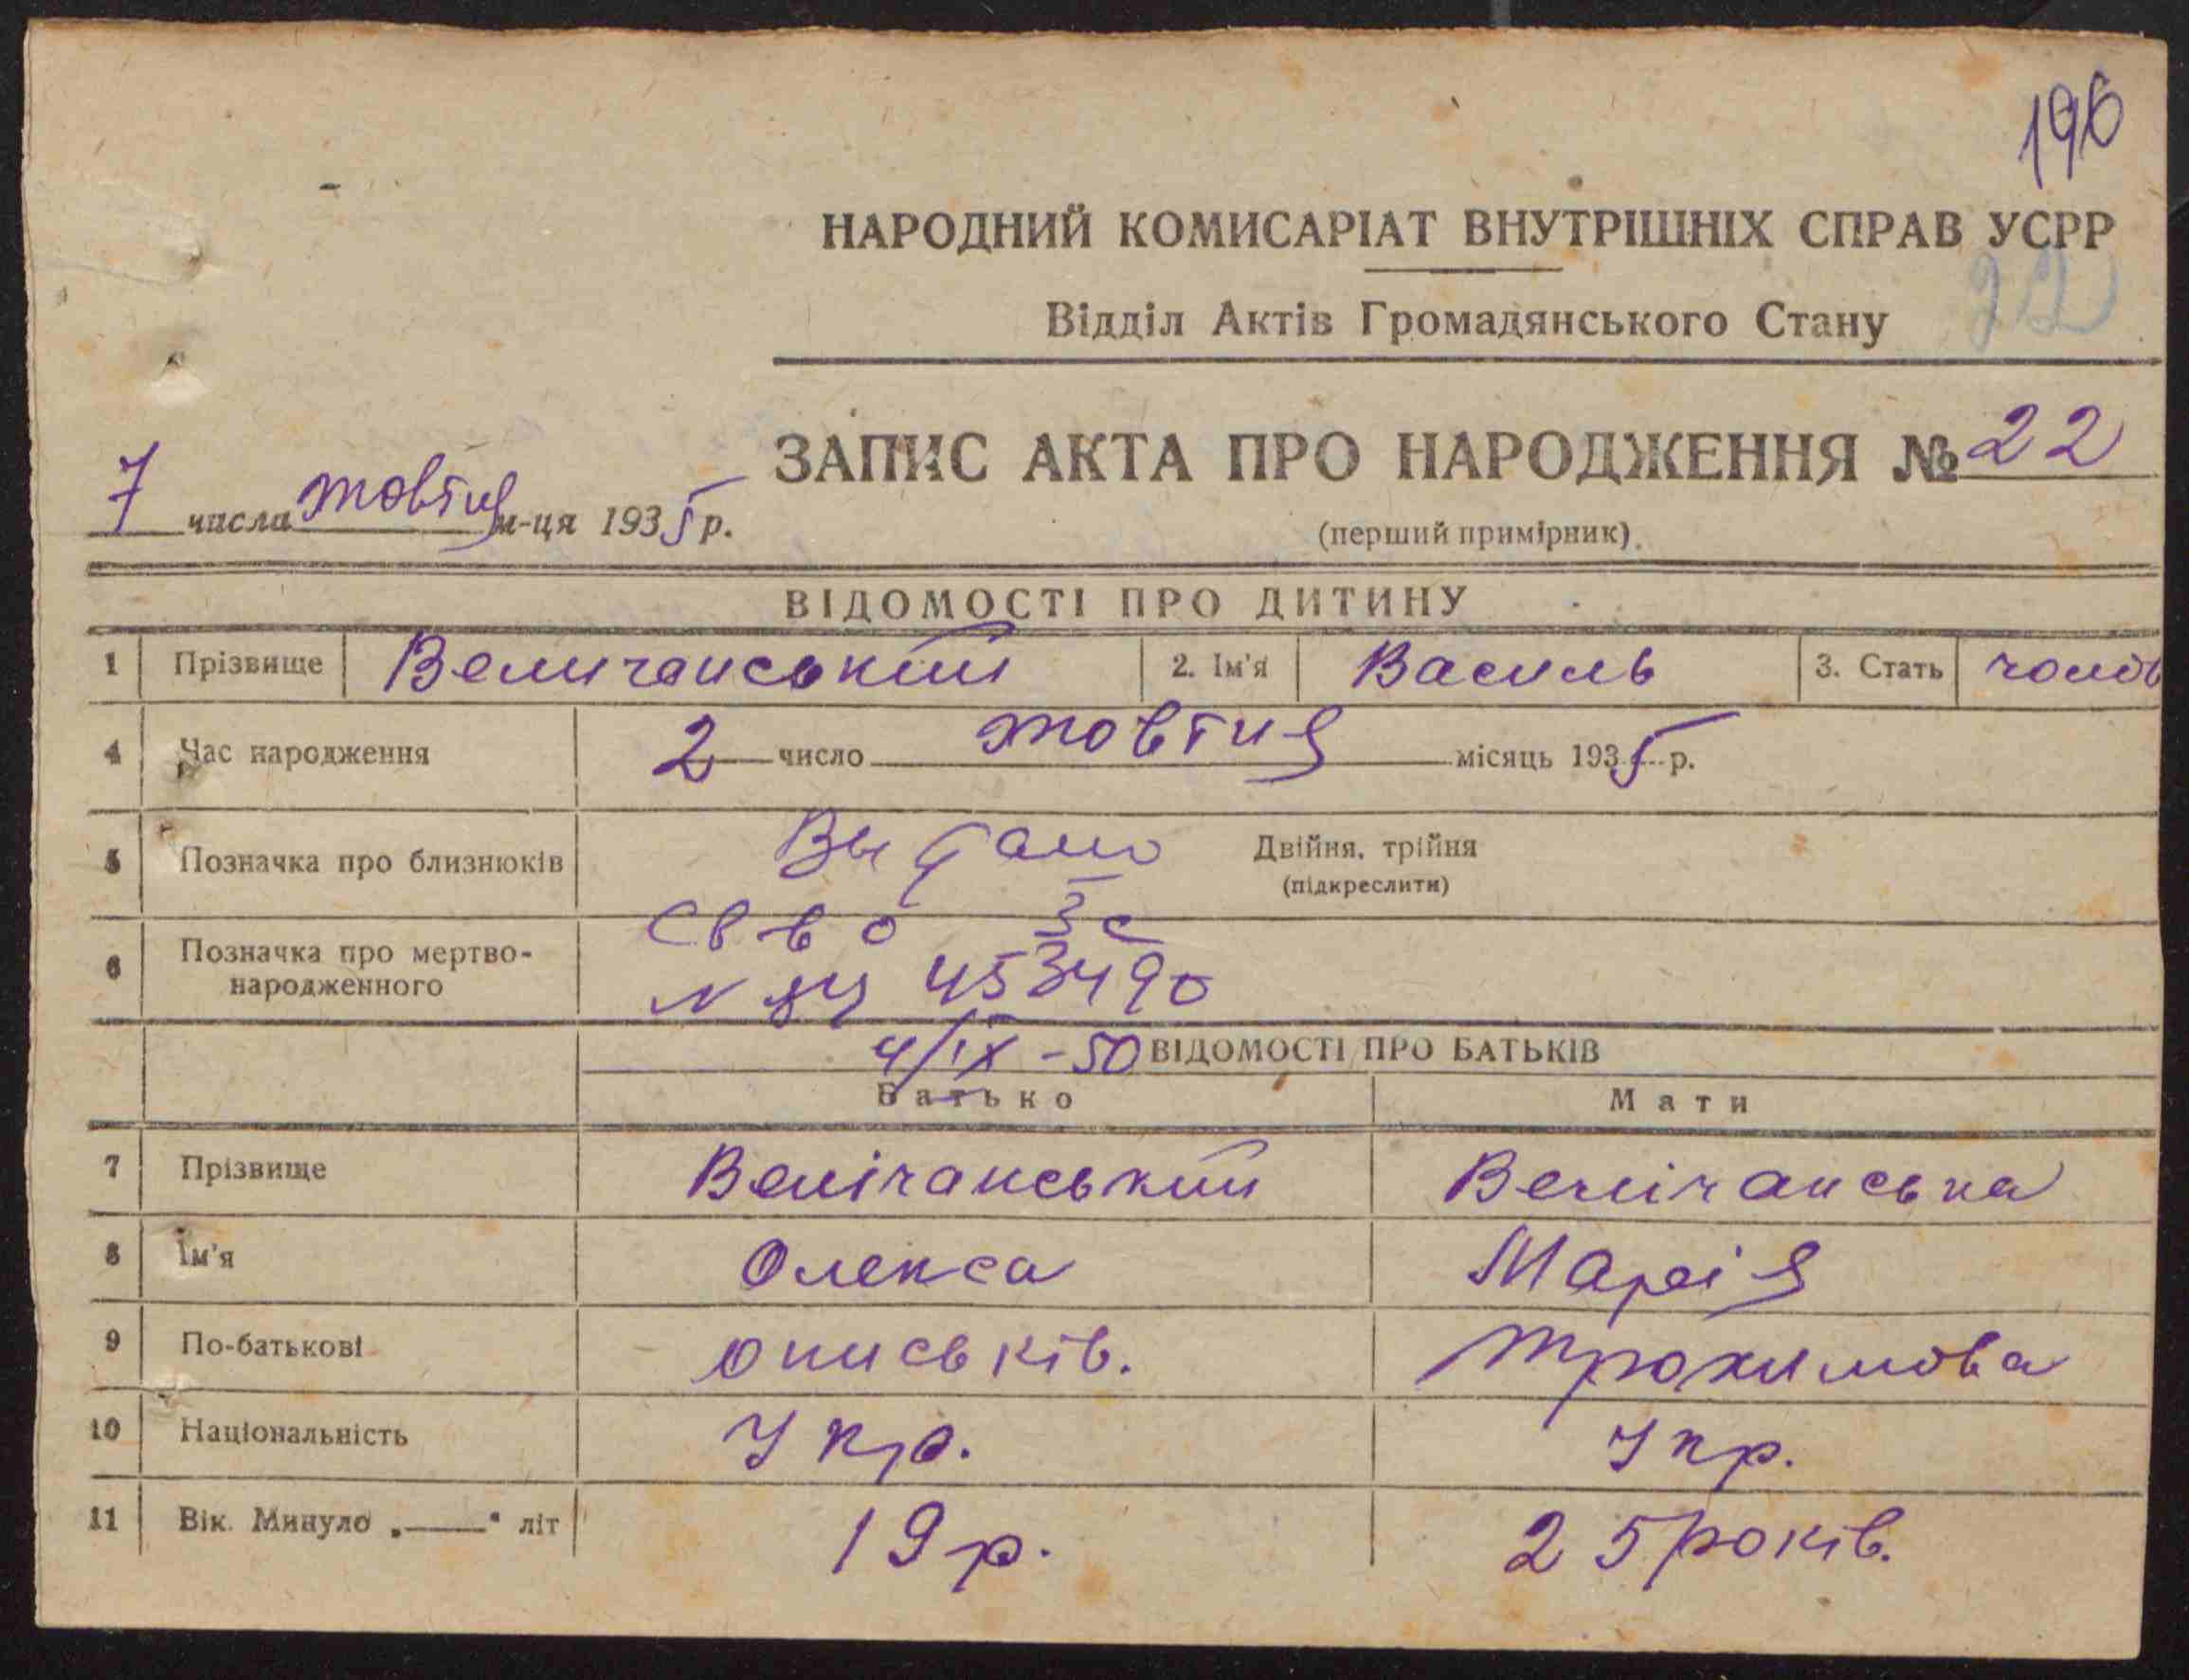 196
НАРОДНИЙ КОМИСАРІАТ ВНУТРІШНІХ СПРАВ УСРР
22
Відділ Актів Громадянського Стану
ЗАПИС АКТА ПРО НАРОДЖЕННЯ № 22
7 числа жовтня м-ця 1935 р.
(перший примірник).
ВІДОМОСТІ ПРО ДИТИНУ
1 Прізвище Величанський 2. Ім'я Василь 3. Стать чолов
4 Час народження 2 число жовтня місяць 1935 р.
5 Позначка про близнюків Выдано Двійня, трійня
(підкреслити)
св во
6 Позначка про мертво-
народженного
N 453490
4/IX - 50 ВІДОМОСТІ ПРО БАТЬКІВ
Батько Мати
7 Прізвище Велічанський Велічанська
8 Ім'я Олекса Марія
9 По-батькові ониськів. Трохимова
10 Національність Укр. Укр.
11 Вік. Минуло „——“ літ 19 р. 25 років.